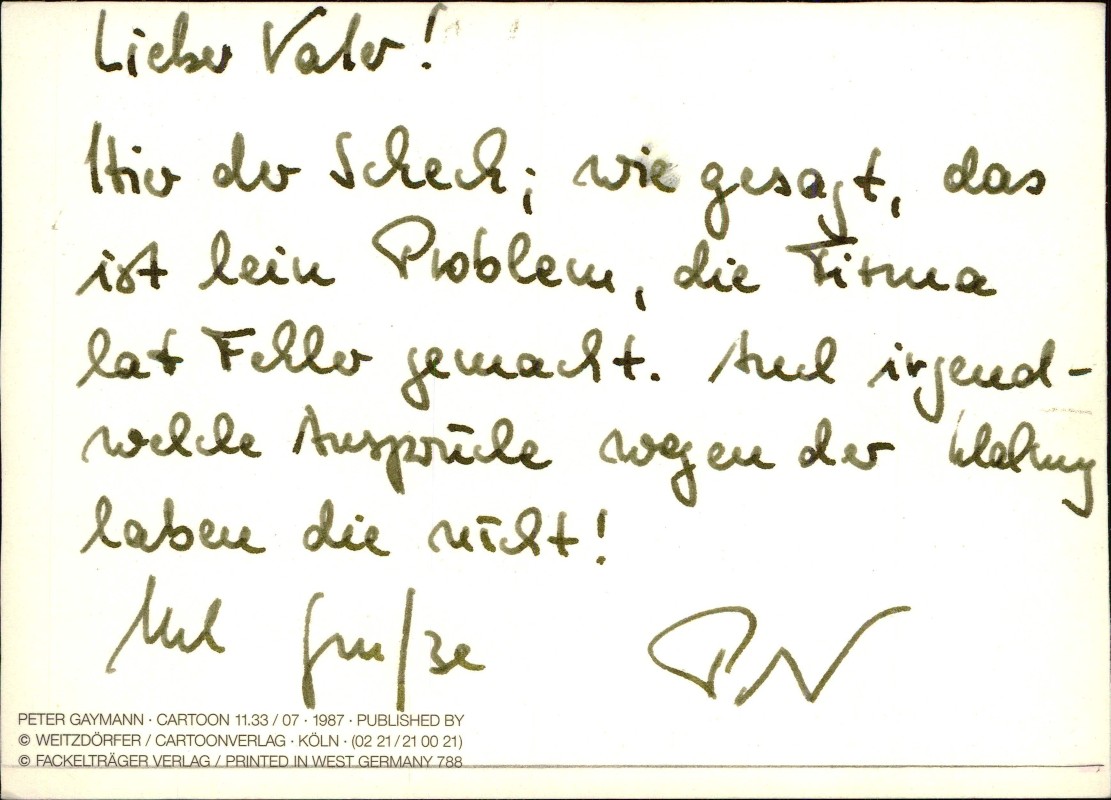 Lieber Vater!
Hier der Scheck; wie gesagt, das
ist kein Problem, die Firma
hat Fehler gemacht. Auch irgend-
welche Ansprüche wegen der
haben die nicht!
Grüße
PETER GAYMANN · CARTOON 11.33 / 07 · 1987 · PUBLISHED BY
© WEITZDÖRFER / CARTOONVERLAG · KÖLN · (02 21 / 21 00 21)
© FACKELTRÄGER VERLAG / PRINTED IN WEST GERMANY 788